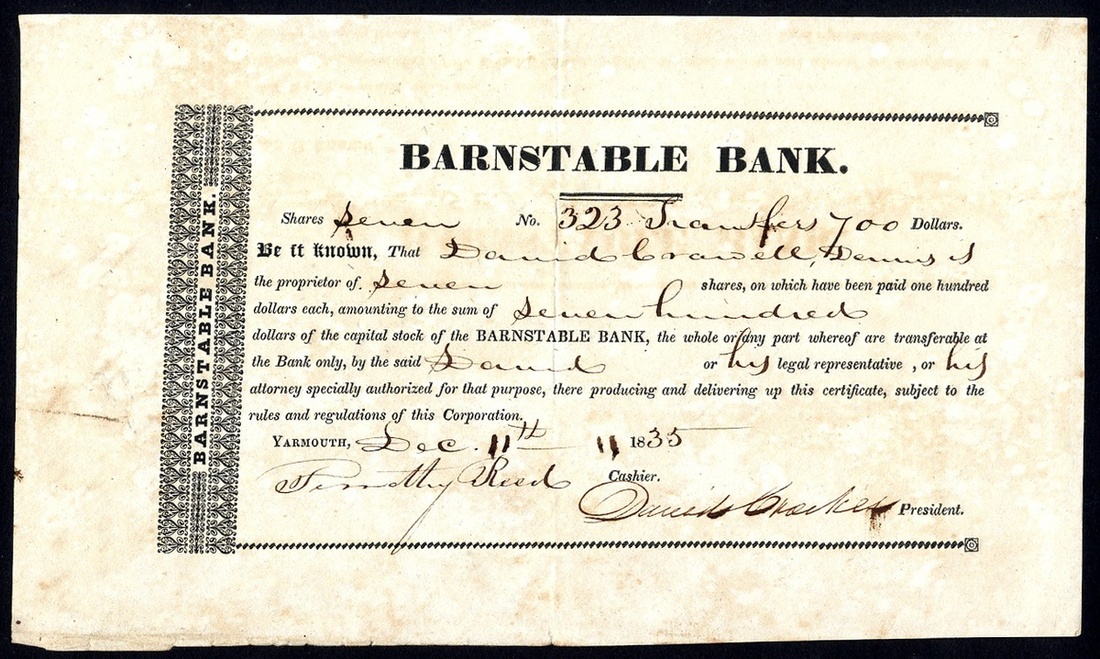 BARNSTABLE BANK.
BARNSTABLE BANK.
Shares seven No. 323 Transfers 700 Dollars.
Be it known, That David Crowell, Dennis is
the proprietor of seven shares, on which have been paid one hundred
dollars each, amounting to the sum of seven hundred
dollars of the capital stock of the BARNSTABLE BANK, the whole or any part whereof are transferable at
the Bank only, by the said David or his legal representative, or his
attorney specially authorized for that purpose, there producing and delivering up this certificate, subject to the
rules and regulations of this Corporation.
YARMOUTH, Dec. 11th 11 1835
Timothy Reed Cashier.
David Crocker President.